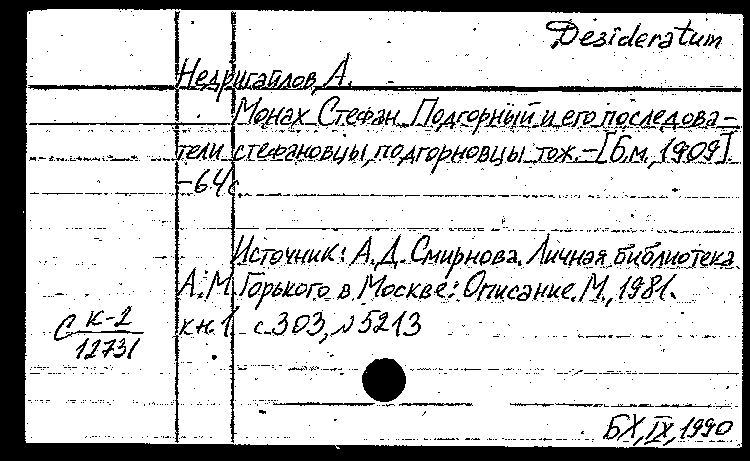 Desideratum
Недригайлов, А.
Монах Стефан Подгорный и его последова-
тели стефановцы, подгорновцы тож. – [Б.м., 1909].
– 64 с.
Источник: А.Д. Смирнова. Личная библиотека
А.М. Горького в Москве: Описание. М., 1981.
кн. 1. с. 303, № 5213
С К-2
12731
БХ, IX, 1990